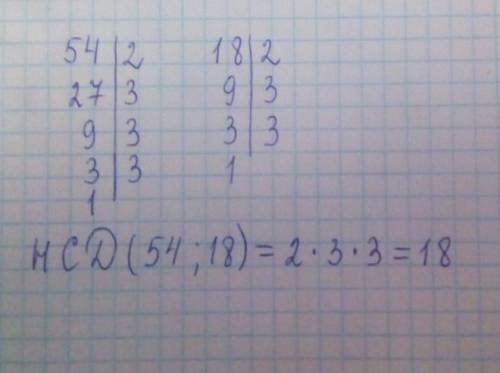 54 | 2 18 | 2
27 | 3 9 | 3
9 | 3 3 | 3
3 | 3 1
1
НСД (54 ; 18) = 2 · 3 · 3 = 18